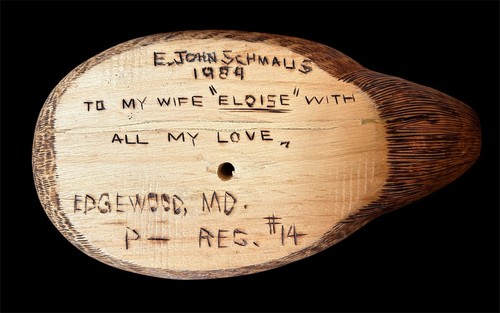 E. JOHN SCHMAUS
1984
TO MY WIFE "ELOISE" WITH
ALL MY LOVE,,
EDGEWOOD, MD.
P — REG. #14